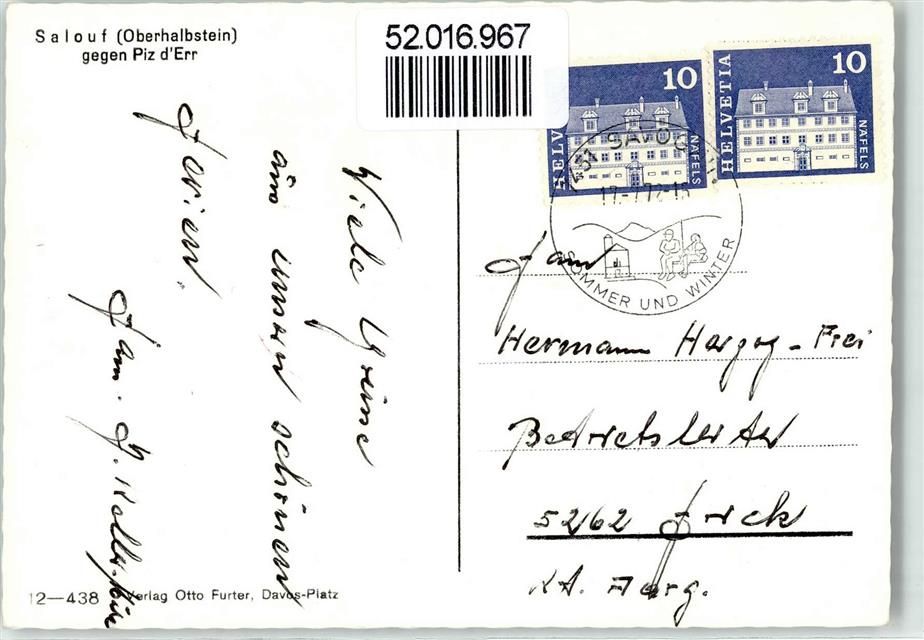 Salouf (Oberhalbstein)
gegen Piz d'Err
52.016.967
HELVETIA 10 NÄFELS
HELVETIA 10 NÄFELS
SAVOG
17.-7.72-15
SOMMER UND WINTER
Viele Grüsse
aus unsern schönen
Ferien
Fam.
Fam
Hermann Herzog-Frei
Betriebsleiter
5262 Frick
Kt. Aarg.
12—438 Verlag Otto Furter, Davos-Platz